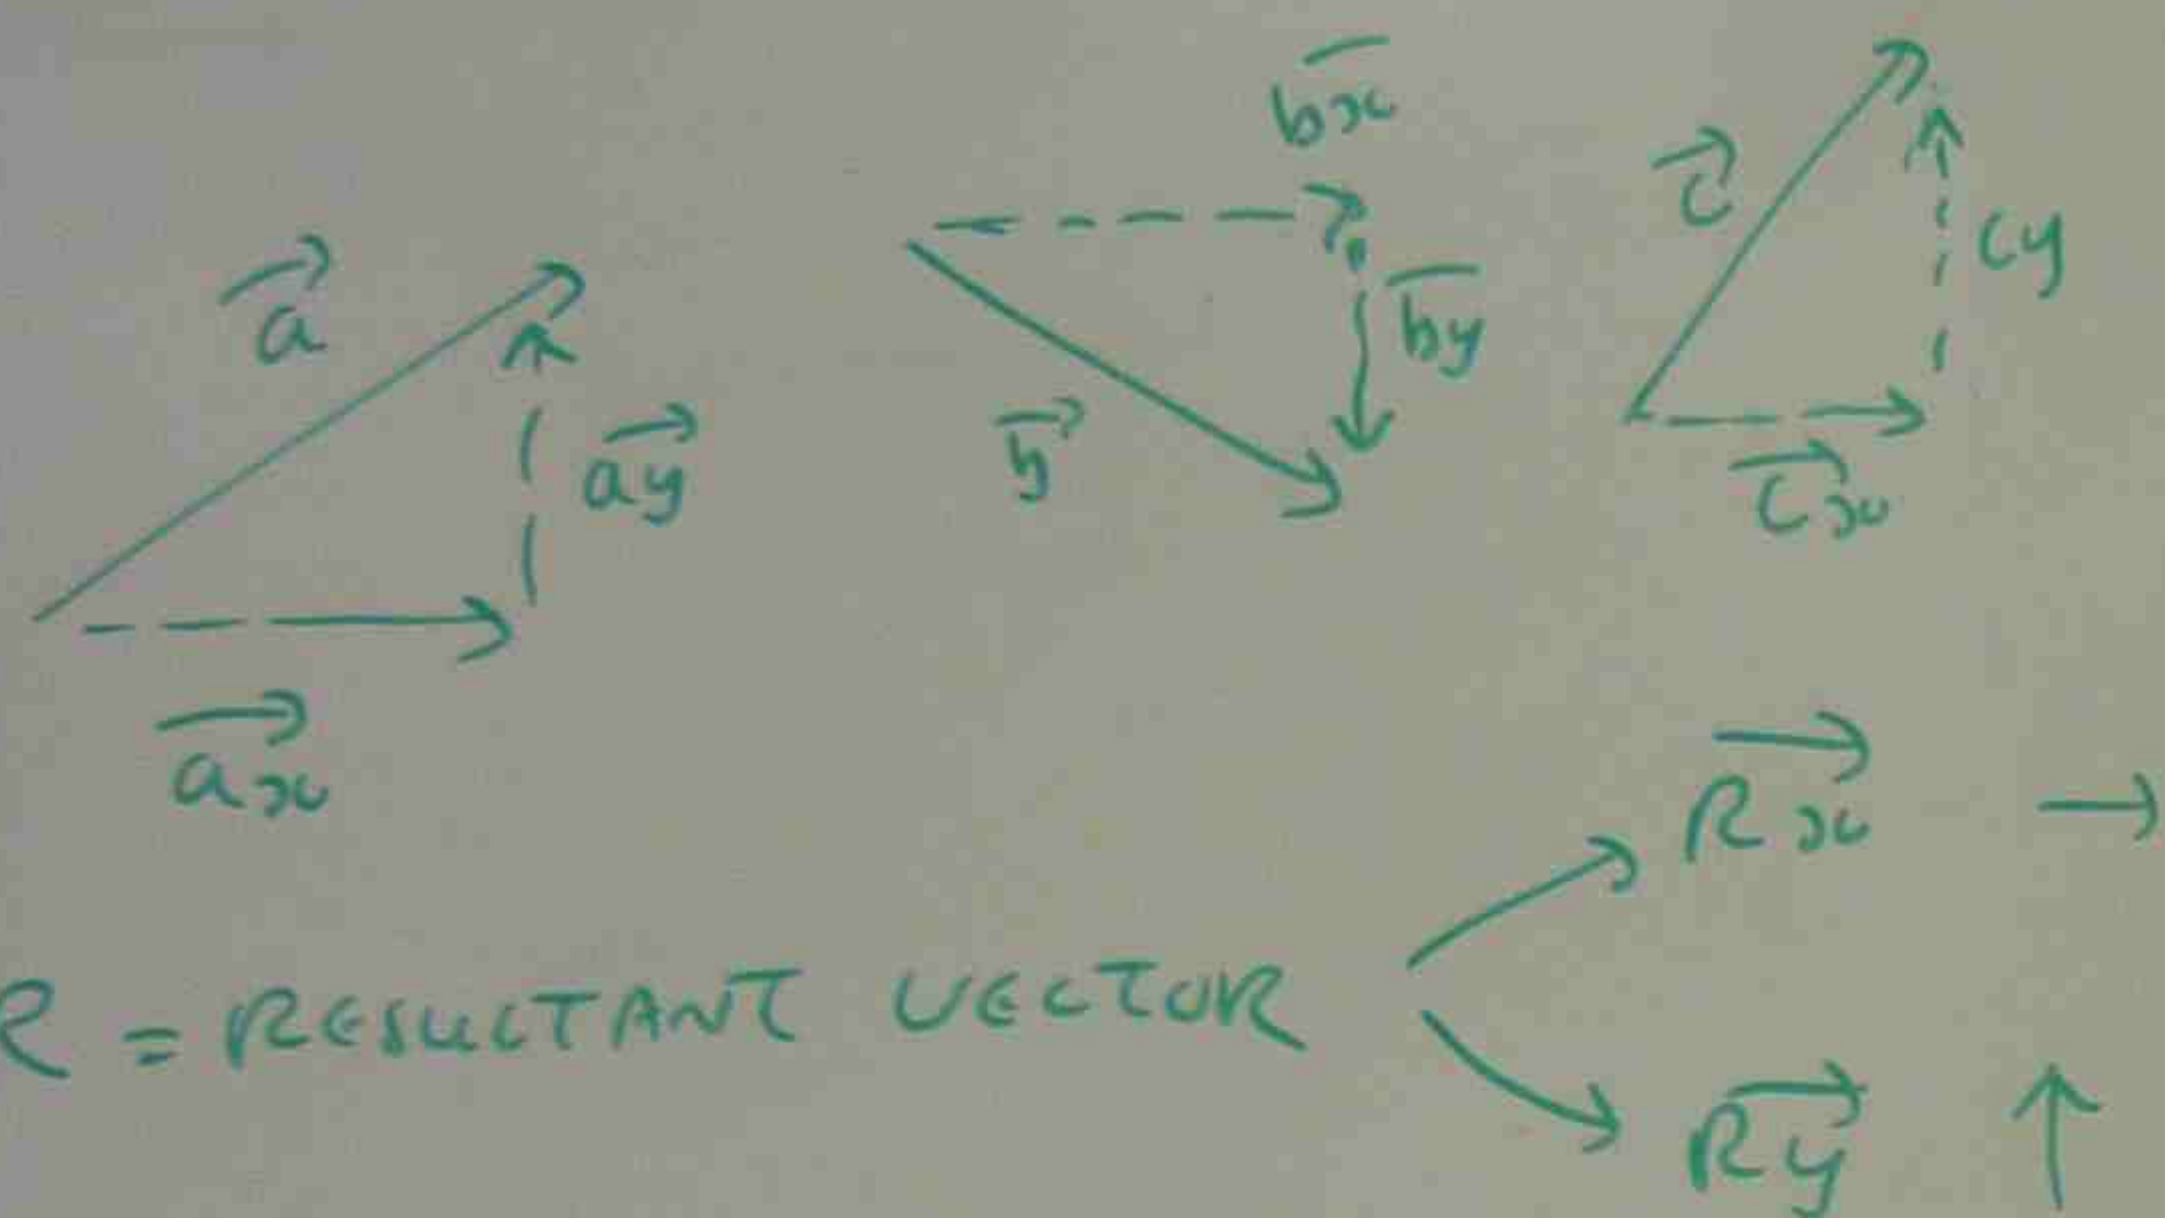 a⃗
a⃗y
a⃗x
b̅x
b̅y
b⃗
c⃗
cy
c⃗x
R = RESULTANT VECTOR
R⃗x →
R⃗y ↑